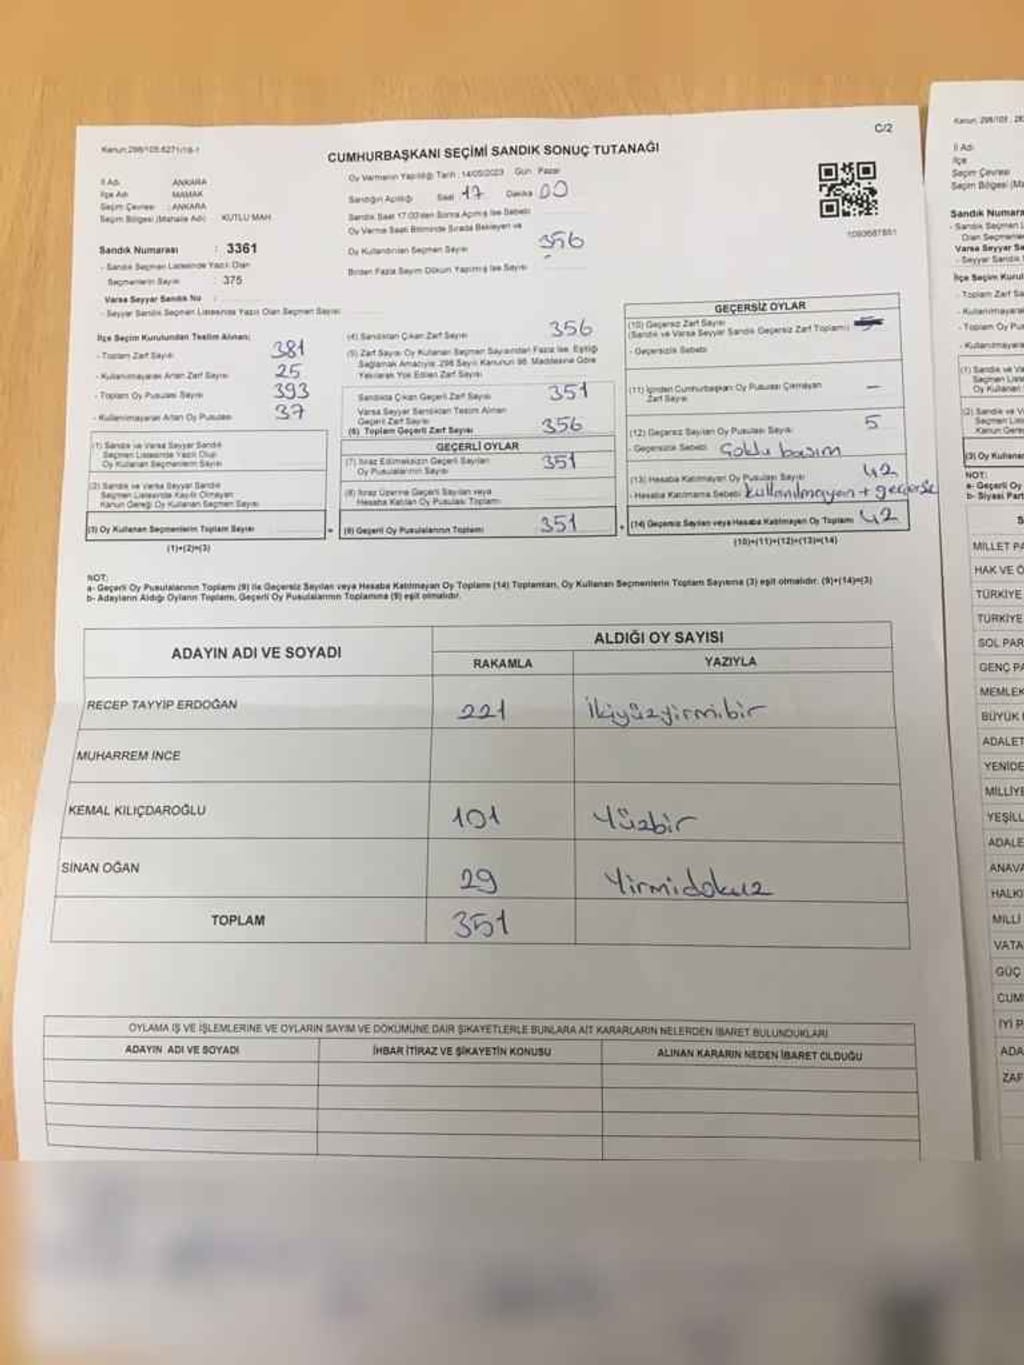 C/2
Kanun:298/105,6271/19-1
CUMHURBAŞKANI SEÇİMİ SANDIK SONUÇ TUTANAĞI
İl Adı ANKARA
İlçe Adı MAMAK
Seçim Çevresi : ANKARA
Seçim Bölgesi (Mahalle Adı) KUTLU MAH
Sandık Numarası : 3361
- Sandık Seçmen Listesinde Yazılı Olan
Seçmenlerin Sayısı : 375
Varsa Seyyar Sandık No :
- Seyyar Sandık Seçmen Listesinde Yazılı Olan Seçmen Sayısı
Oy Vermenin Yapıldığı Tarih : 14/05/2023 Gün : Pazar
Sandığın Açıldığı Saat 17 Dakika 00
Sandık Saat 17.00'den Sonra Açılmış İse Sebebi
Oy Verme Saati Bitiminde Sırada Bekleyen ve
Oy Kullandırılan Seçmen Sayısı 356
Birden Fazla Sayım Döküm Yapılmış İse Sayısı
1093687851
İlçe Seçim Kurulundan Teslim Alınan;
- Toplam Zarf Sayısı 381
- Kullanılmayarak Artan Zarf Sayısı 25
- Toplam Oy Pusulası Sayısı 393
- Kullanılmayarak Artan Oy Pusulası 37
(1) Sandık ve Varsa Seyyar Sandık
Seçmen Listesinde Yazılı Olup
Oy Kullanan Seçmenlerin Sayısı
(2) Sandık ve Varsa Seyyar Sandık
Seçmen Listesinde Kayıtlı Olmayan
Kanun Gereği Oy Kullanan Seçmen Sayısı
(3) Oy Kullanan Seçmenlerin Toplam Sayısı
(1)+(2)=(3)
(4) Sandıktan Çıkan Zarf Sayısı 356
(5) Zarf Sayısı Oy Kullanan Seçmen Sayısından Fazla İse, Eşitliği
Sağlamak Amacıyla, 298 Sayılı Kanunun 98. Maddesine Göre
Yakılarak Yok Edilen Zarf Sayısı
Sandıkta Çıkan Geçerli Zarf Sayısı 351
Varsa Seyyar Sandıktan Teslim Alınan
Geçerli Zarf Sayısı
(6) Toplam Geçerli Zarf Sayısı 356
GEÇERLİ OYLAR
(7) İtiraz Edilmeksizin Geçerli Sayılan
Oy Pusulalarının Sayısı 351
(8) İtiraz Üzerine Geçerli Sayılan veya
Hesaba Katılan Oy Pusulası Toplamı
(9) Geçerli Oy Pusulalarının Toplamı 351
GEÇERSİZ OYLAR
(10) Geçersiz Zarf Sayısı
(Sandık ve Varsa Seyyar Sandık Geçersiz Zarf Toplamı)
- Geçersizlik Sebebi
(11) İçinden Cumhurbaşkanı Oy Pusulası Çıkmayan
Zarf Sayısı —
(12) Geçersiz Sayılan Oy Pusulası Sayısı 5
- Geçersizlik Sebebi Çoklu basım
(13) Hesaba Katılmayan Oy Pusulası Sayısı 42
- Hesaba Katılmama Sebebi kullanılmayan + geçersiz
(14) Geçersiz Sayılan veya Hesaba Katılmayan Oy Toplamı 42
(10)+(11)+(12)+(13)=(14)
NOT:
a- Geçerli Oy Pusulalarının Toplamı (9) ile Geçersiz Sayılan veya Hesaba Katılmayan Oy Toplamı (14) Toplamları, Oy Kullanan Seçmenlerin Toplam Sayısına (3) eşit olmalıdır. (9)+(14)=(3)
b- Adayların Aldığı Oyların Toplamı, Geçerli Oy Pusulalarının Toplamına (9) eşit olmalıdır.
ADAYIN ADI VE SOYADI
ALDIĞI OY SAYISI
RAKAMLA YAZIYLA
RECEP TAYYİP ERDOĞAN 221 İkiyüzyirmibir
MUHARREM İNCE
KEMAL KILIÇDAROĞLU 101 Yüzbir
SİNAN OĞAN 29 Yirmidokuz
TOPLAM 351
OYLAMA İŞ VE İŞLEMLERİNE VE OYLARIN SAYIM VE DÖKÜMÜNE DAİR ŞİKAYETLERLE BUNLARA AİT KARARLARIN NELERDEN İBARET BULUNDUKLARI
ADAYIN ADI VE SOYADI İHBAR İTİRAZ VE ŞİKAYETİN KONUSU ALINAN KARARIN NEDEN İBARET OLDUĞU
İl Adı
İlçe
Seçim Çevresi
Seçim Bölgesi (Ma
Sandık Numara
Varsa Seyyar Sa
İlçe Seçim Kurul
- Toplam Zarf Sa
- Kullanılmayarak
- Toplam Oy Pus
- Kullanılmayara
(3) Oy Kullanan
NOT:
a- Geçerli Oy
b- Siyasi Part
S
MİLLET PA
HAK VE Ö
TÜRKİYE
TÜRKİYE
SOL PAR
GENÇ PA
MEMLEK
BÜYÜK
ADALET
YENİDE
MİLLİYE
YEŞİL
ADALE
ANAVA
HALKI
MİLLİ
VATA
GÜÇ
CUM
İYİ P
ADA
ZAF